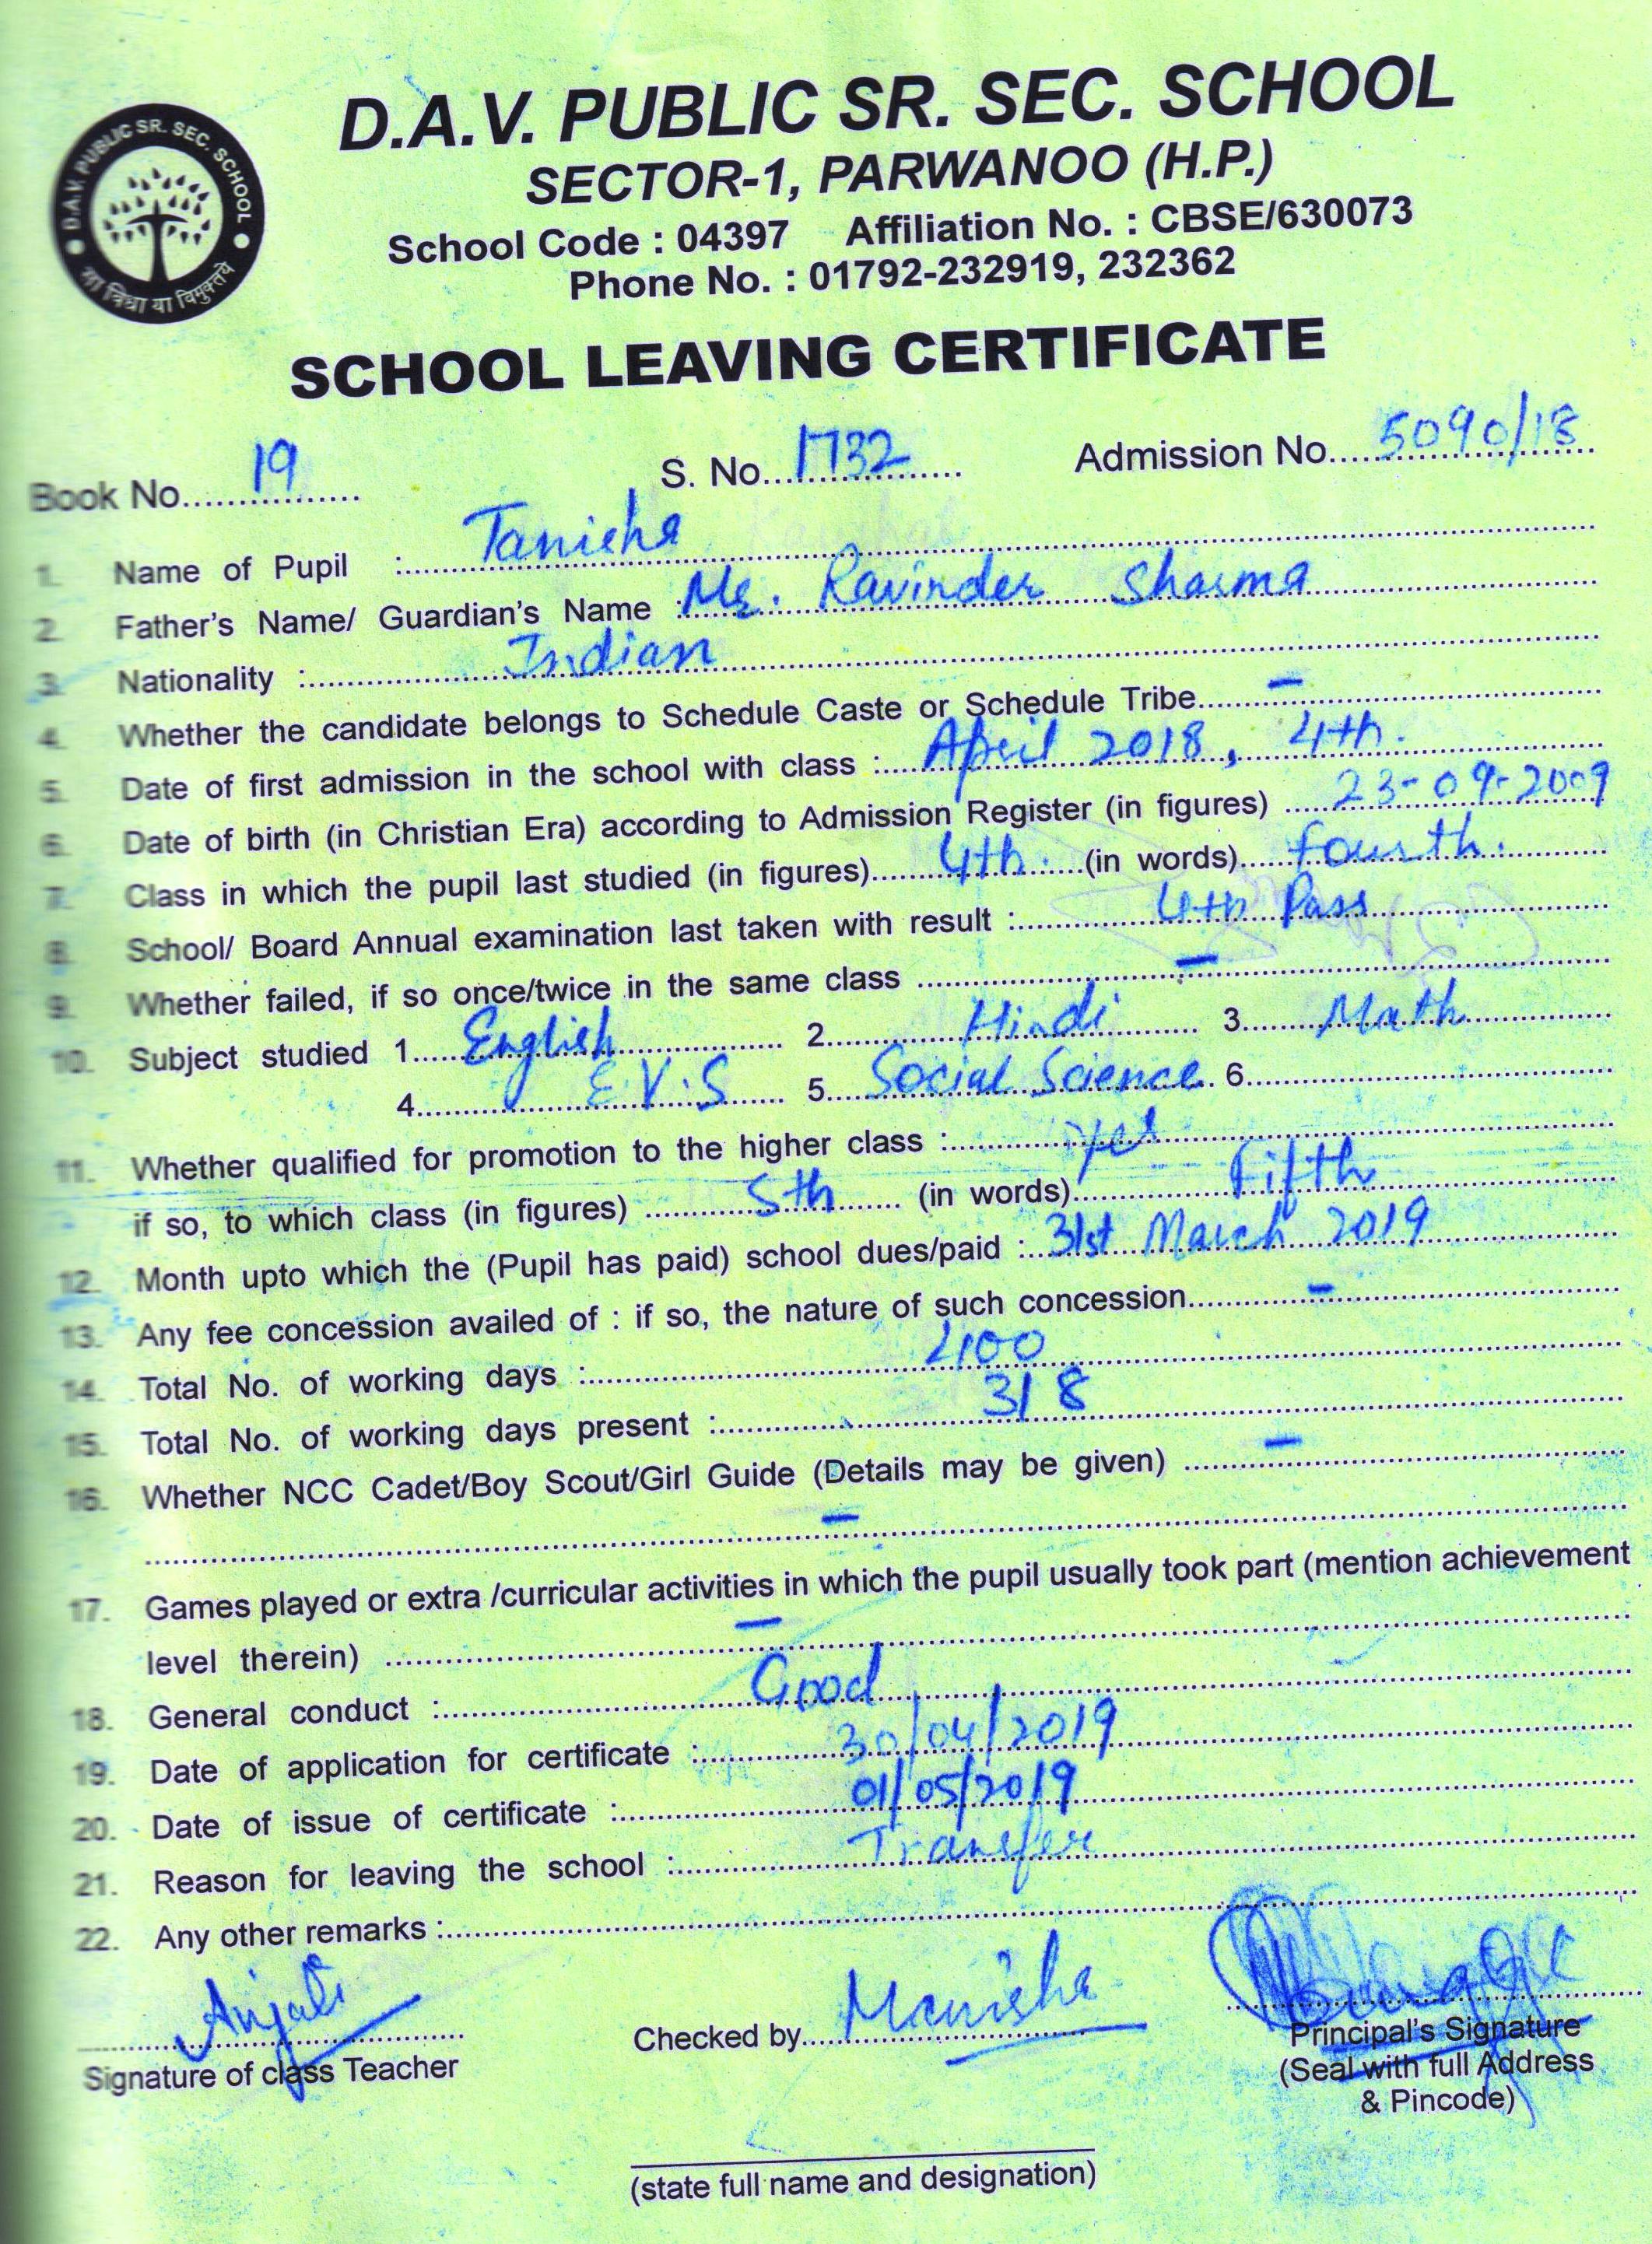 D.A.V. PUBLIC SR. SEC. SCHOOL
D.A.V. PUBLIC SR. SEC. SCHOOL
सा विद्या या विमुक्तये
SECTOR-1, PARWANOO (H.P.)
School Code : 04397 Affiliation No. : CBSE/630073
Phone No. : 01792-232919, 232362
SCHOOL LEAVING CERTIFICATE
Book No. 19 S. No. 1732 Admission No. 5090/18
1. Name of Pupil : Tanisha
2. Father's Name/ Guardian's Name : Mr. Ravinder Sharma
3. Nationality : Indian
4. Whether the candidate belongs to Schedule Caste or Schedule Tribe –
5. Date of first admission in the school with class : April 2018, 4th.
6. Date of birth (in Christian Era) according to Admission Register (in figures) 23-09-2009
7. Class in which the pupil last studied (in figures) 4th. (in words) fourth.
8. School/ Board Annual examination last taken with result : 4th Pass
9. Whether failed, if so once/twice in the same class –
10. Subject studied 1. English 2. Hindi 3. Math
4. E.V.S 5. Social Science 6.
11. Whether qualified for promotion to the higher class : yes
if so, to which class (in figures) 5th (in words) Fifth
12. Month upto which the (Pupil has paid) school dues/paid : 31st March 2019
13. Any fee concession availed of : if so, the nature of such concession –
14. Total No. of working days : 400
15. Total No. of working days present : 318
16. Whether NCC Cadet/Boy Scout/Girl Guide (Details may be given) –
–
17. Games played or extra /curricular activities in which the pupil usually took part (mention achievement
level therein) –
18. General conduct : Good
19. Date of application for certificate : 30/04/2019
20. Date of issue of certificate : 01/05/2019
21. Reason for leaving the school : Transfer
22. Any other remarks :
Anjali
Signature of class Teacher
Checked by Manisha
Principal's Signature
(Seal with full Address
& Pincode)
(state full name and designation)